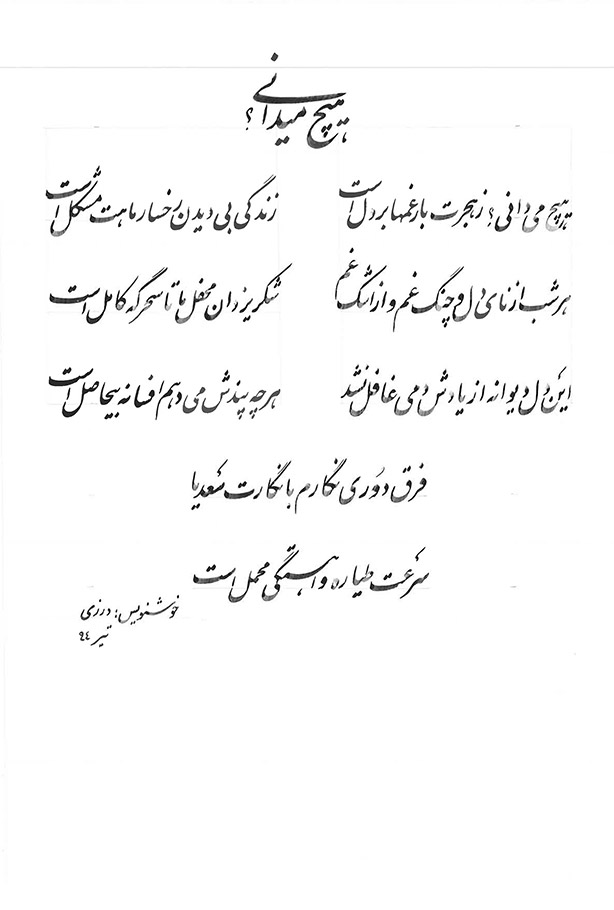 هیچ میدانی؟
هیچ می دانی؟ زهجرت بار غمها بر دل است
زندگی بی دیدن رخسار ماهت مشکل است
هر شب از نای دل و چنگ غم و از اشک غم
شکریزدان محفل ما تا سحرگه کامل است
این دل دیوانه از یادش دمی غافل نشد
هرچه پندش می دهم افسانه بیحاصل است
فرق دوری نگارم با نگارت سعدیا
سرعت طیاره و آهستگی محمل است
خوشنویس: درزی
تیر ۹۴